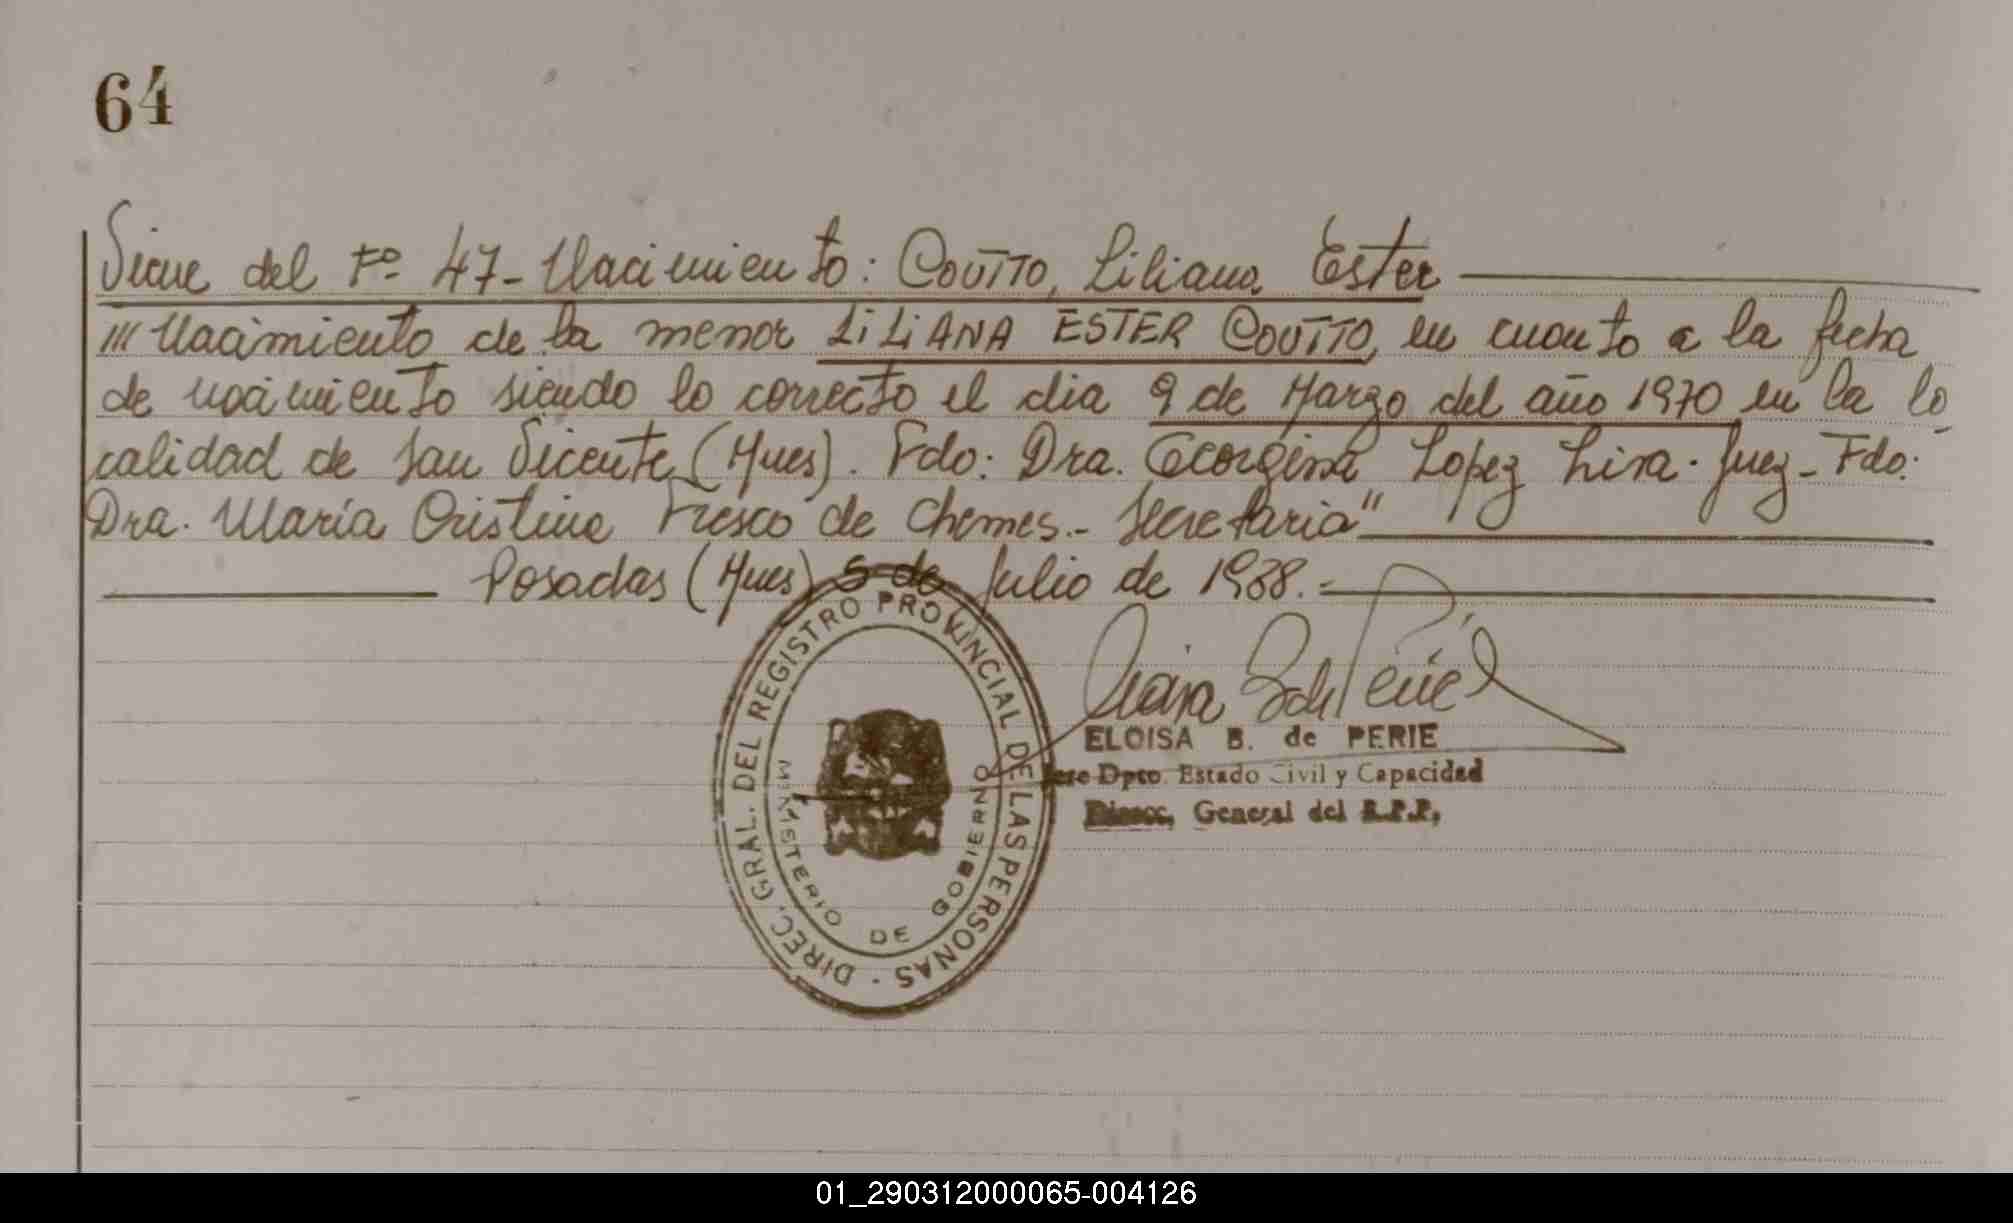 64
Viene del Fº 47- Nacimiento: COUTTO, Liliana Ester
/// Nacimiento de la menor LILIANA ESTER COUTTO, en cuanto a la fecha
de nacimiento siendo lo correcto el dia 9 de Marzo del año 1970 en la lo
calidad de San Vicente (Mnes). Fdo: Dra. Georgina Lopez Lira. Juez- Fdo:
Dra. María Cristina Fresco de Chemes.- Secretaria"
Posadas (Mnes) 5 de Julio de 1988.-
DIREC. GRAL. DEL REGISTRO PROVINCIAL DE LAS PERSONAS
MINISTERIO DE GOBIERNO
ELOISA B. de PERIE
Jefe Dpto. Estado Civil y Capacidad
General del R.P.P.
01_290312000065-004126